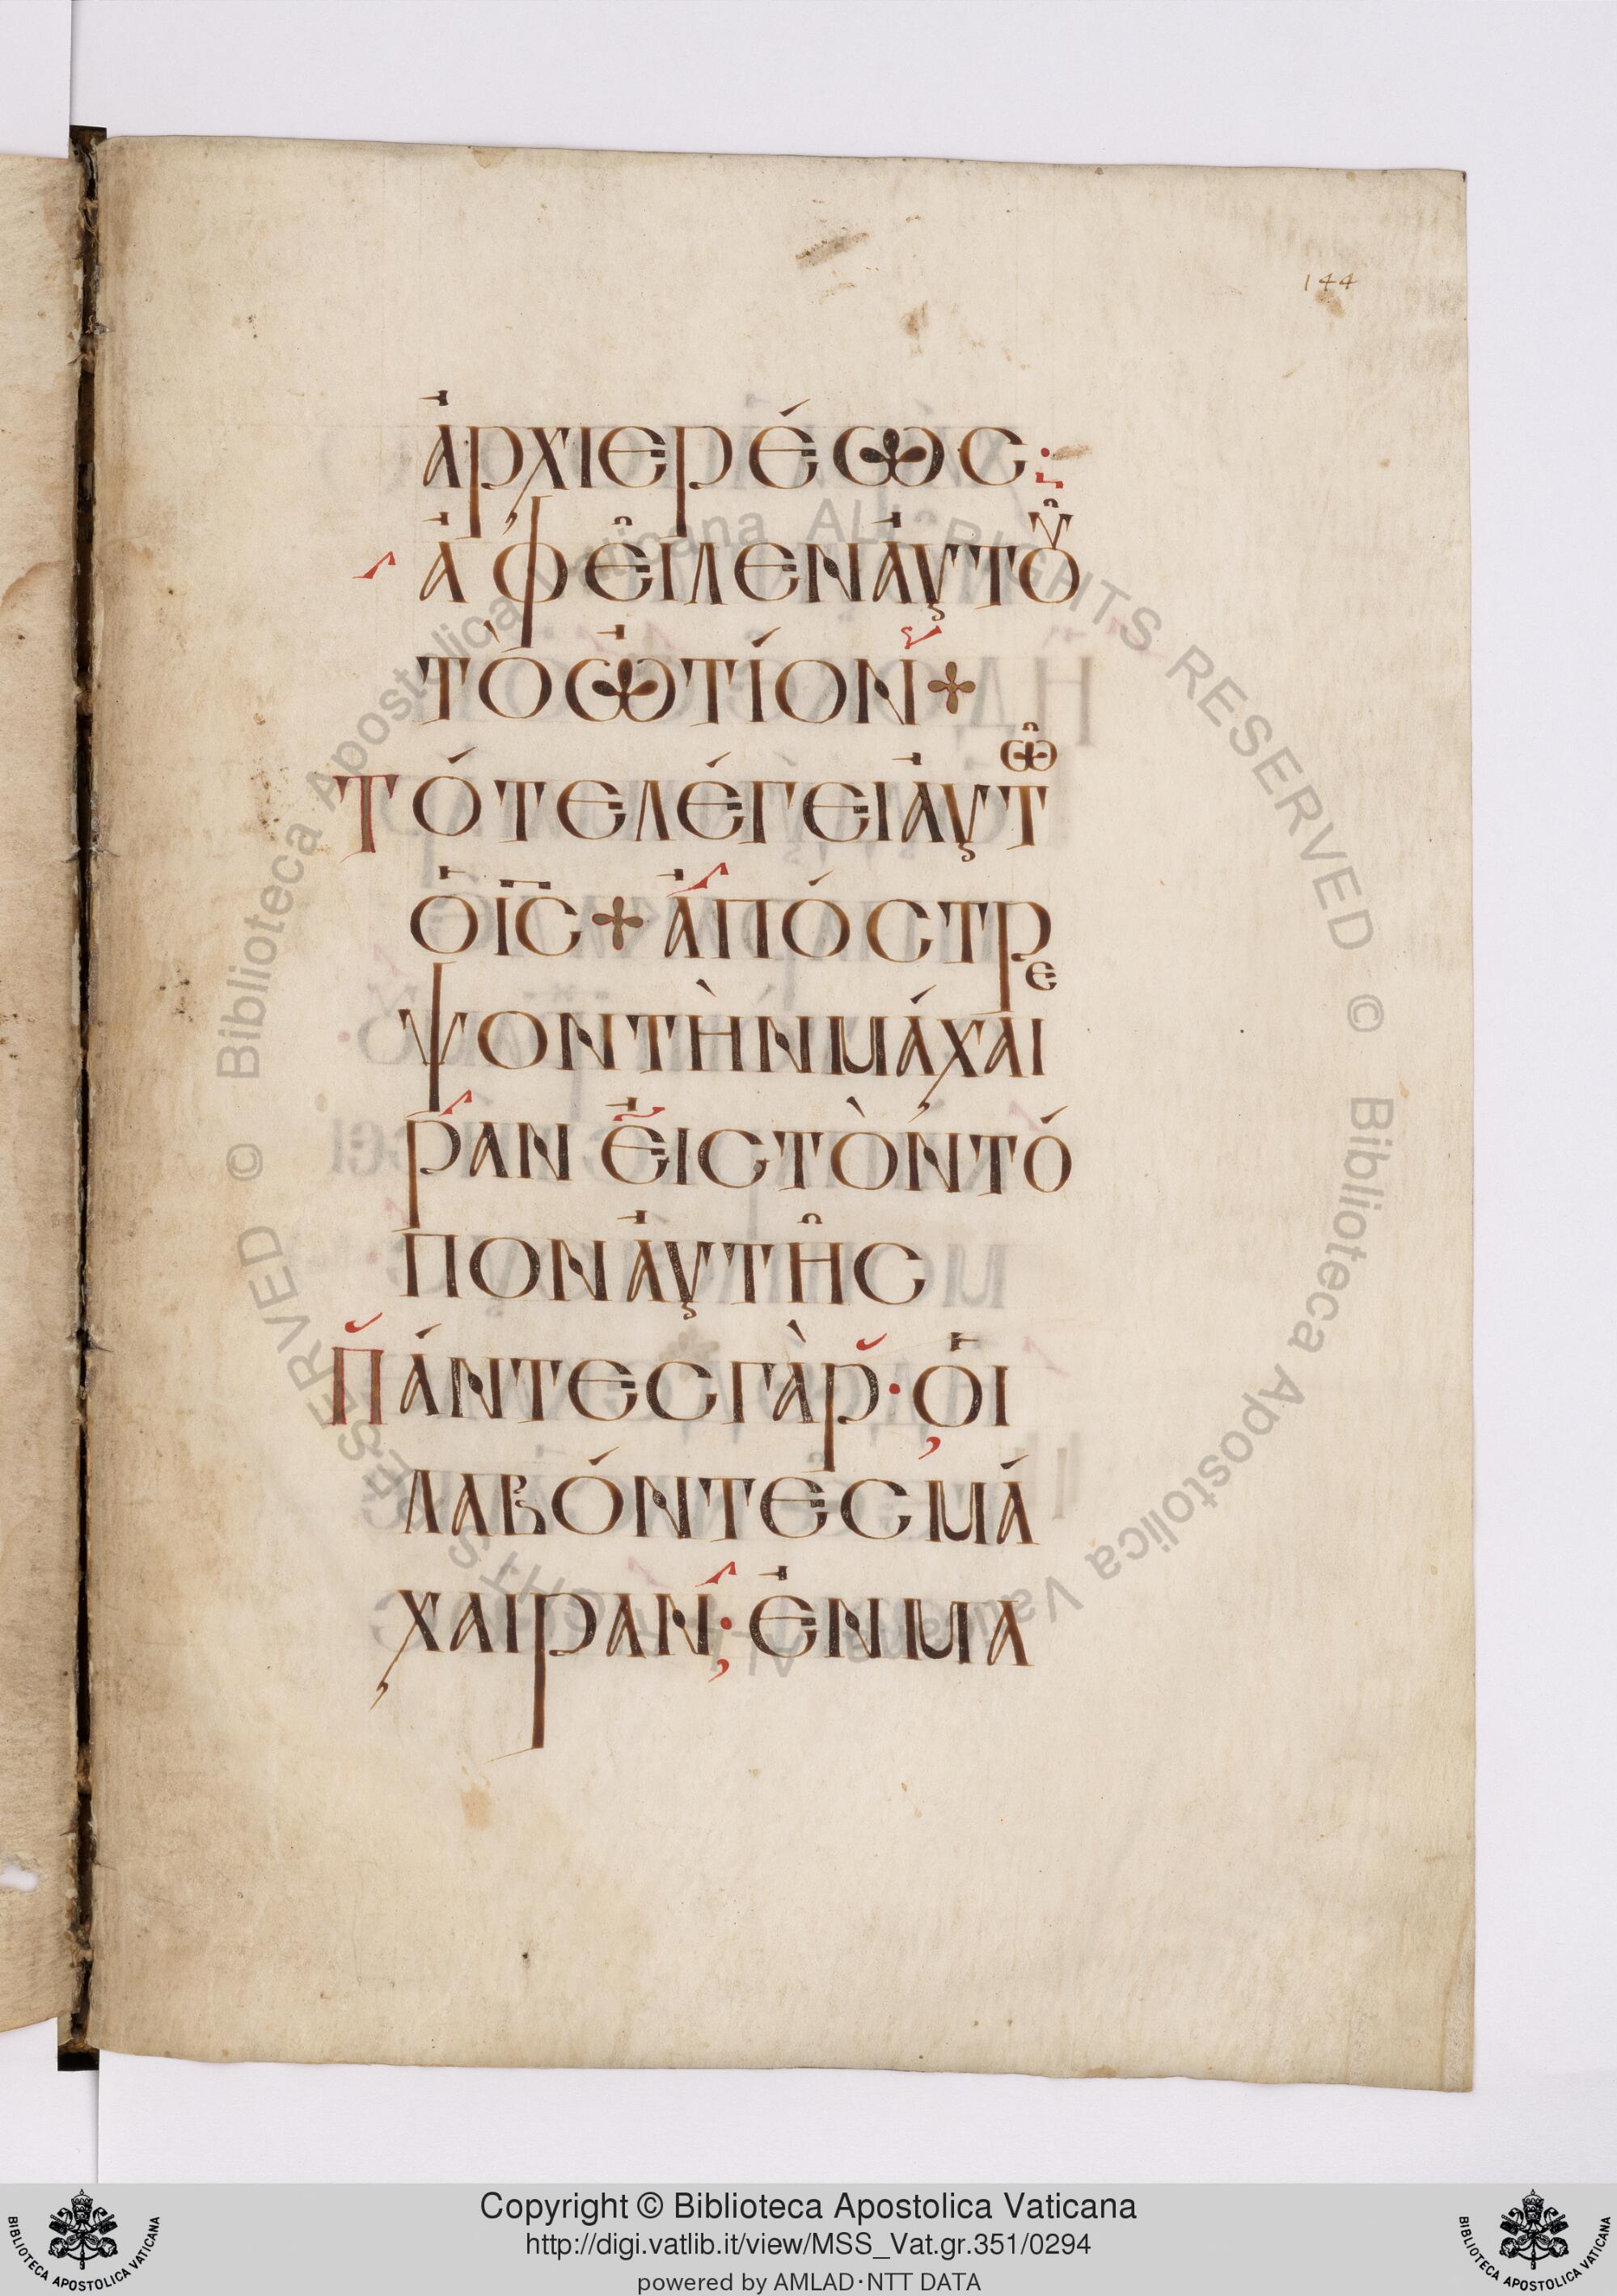 144
ἀρχιερέως
ἀφεῖλεν ἀυτοῦ
τὸ ὠτίον +
Τότε λέγει ἀυτῶ
ὁ ις + ἀπόστρε
ψον τὴν μάχαι
ραν ἐις τὸν τό
πον ἀυτῆς
Πάντες γὰρ · ὁι
λαβόντες μά
χαιραν · ἐν μα
Copyright © Biblioteca Apostolica Vaticana
http://digi.vatlib.it/view/MSS_Vat.gr.351/0294
powered by AMLAD·NTT DATA
BIBLIOTECA APOSTOLICA VATICANA
BIBLIOTECA APOSTOLICA VATICANA
© Biblioteca Apostolica Vaticana ALL RIGHTS RESERVED © Biblioteca Apostolica Vaticana ALL RIGHTS RESERVED